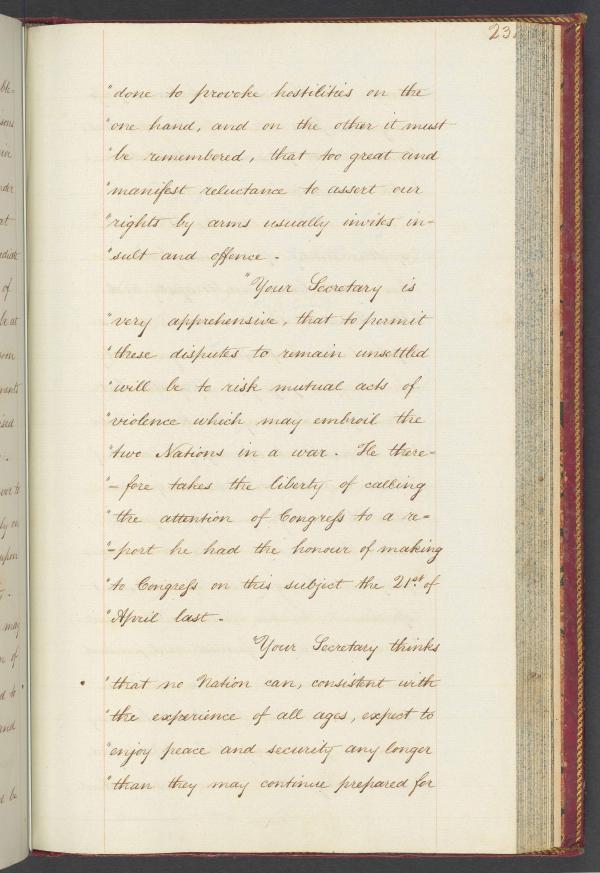 23
"done to provoke hostilities on the
"one hand, and on the other it must
"be remembered, that too great and
"manifest reluctance to assert our
"rights by arms usually invites in-
"sult and offence.
"Your Secretary is
"very apprehensive, that to permit
"these disputes to remain unsettled
"will be to risk mutual acts of
"violence which may embroil the
"two Nations in a war. He there-
"-fore takes the liberty of calling
"the attention of Congreſs to a re-
"-port he had the honour of making
"to Congreſs on this subject the 21st of
"April last.
"Your Secretary thinks
"that no Nation can, consistent with
"the experience of all ages, expect to
"enjoy peace and security any longer
"than they may continue prepared for